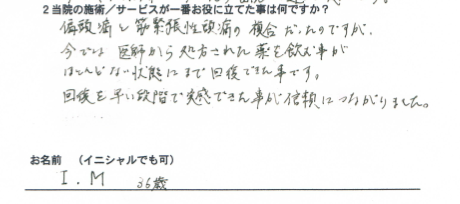 2当院の施術/サービスが一番お役に立てた事は何ですか?
偏頭痛と筋緊張性頭痛の複合だったのですが、
今では医師から処方された薬を飲む事が
ほとんどない状態にまで回復できた事です。
回復を早い段階で実感できた事が信頼につながりました。
お名前 (イニシャルでも可)
I.M 36歳